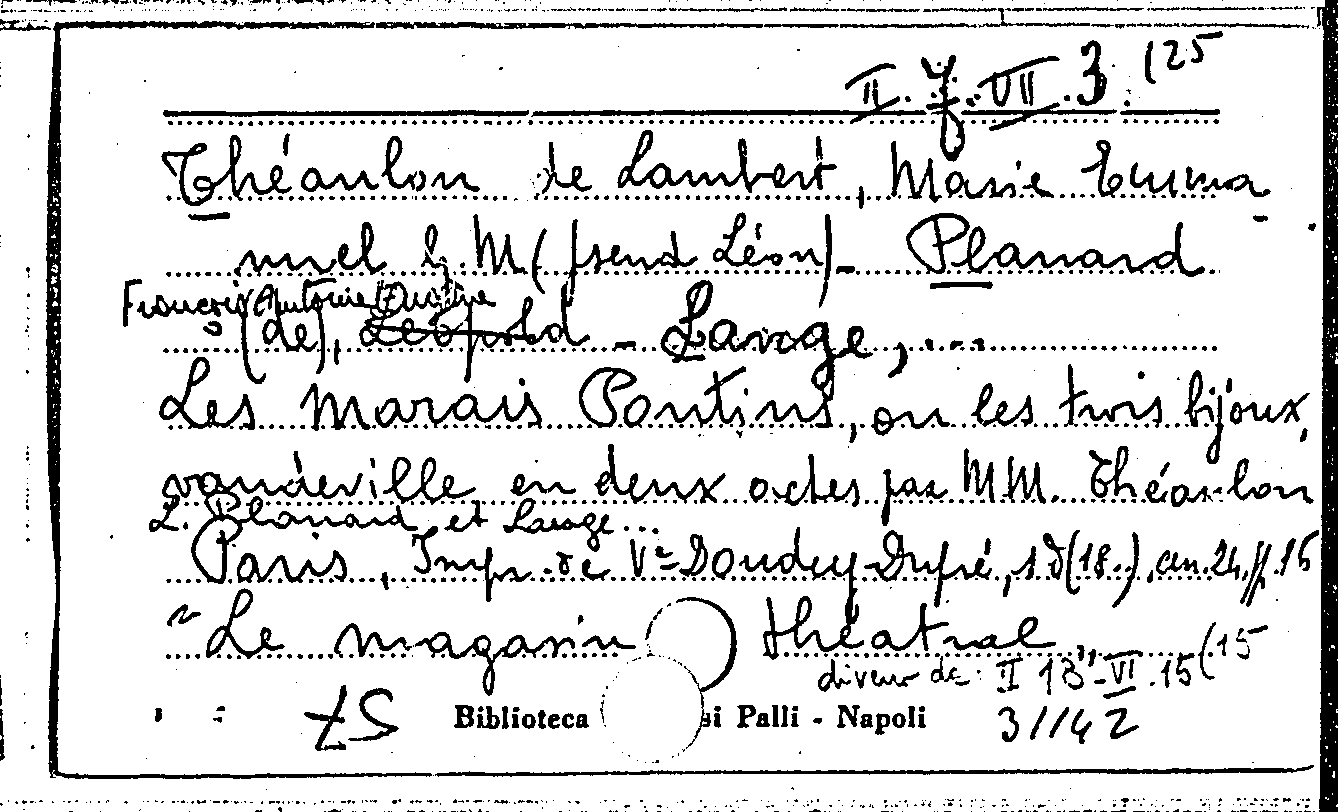 II. Y. VII. 3. (25
Théaulon de Lambert, Marie Emma
nuel G. M (pseud Léon) - Planard
François Antoine Eugène
(de), Léopold - Lange, ...
Les Marais Pontins, ou les trois bijoux,
vaudeville en deux actes par MM. Théaulon
L. Planard et Lange...
Paris, Impr. de Ve Dondey-Dupré, s d (18..), cm. 24. pp. 16
"Le magasin théatral"
diverso da: II 13 - VI. 15 (15
Biblioteca si Palli - Napoli
31142